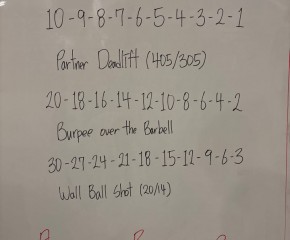 10-9-8-7-6-5-4-3-2-1
Partner Deadlift (405/305)
20-18-16-14-12-10-8-6-4-2
Burpee over the Barbell
30-27-24-21-18-15-12-9-6-3
Wall Ball Shot (20/14)